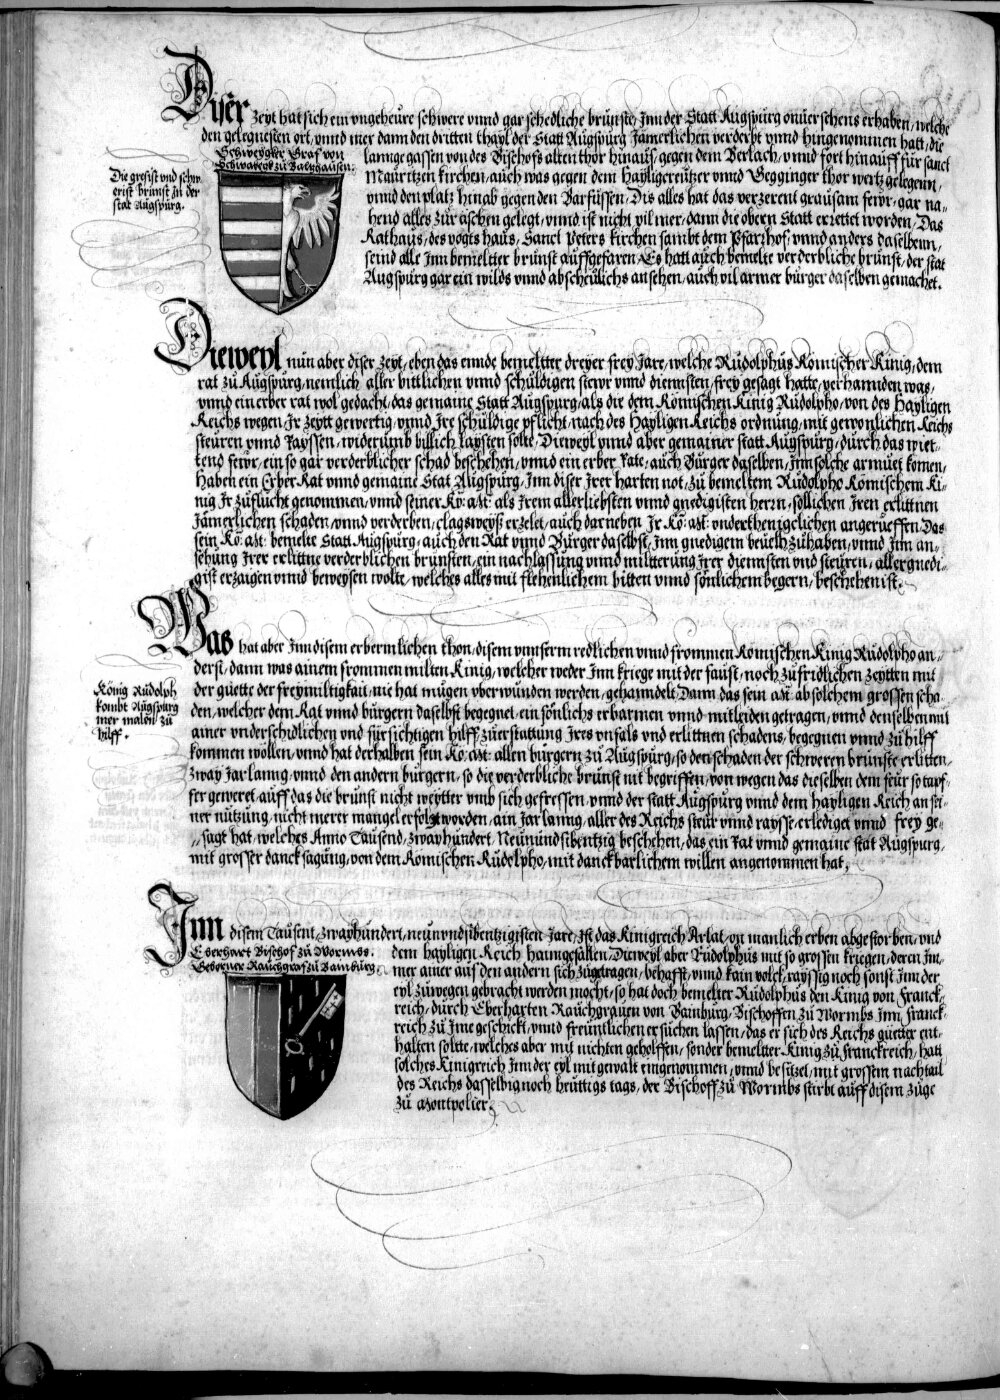 Diser zeyt hat sich ein vngeheure schwere vnnd gar schedliche brunst, Inn der Statt Augspurg onuersehens erhaben, welche
den gelegnesten ort, vnnd mer dann den dritten thayl der Statt Augspurg Jämerlichen verderbt vnnd hingenomen hatt, die
Schweygker Graf von
Schwabegk zu Balzhausen.
lanngegassen von des Bischofs alten thor hinaus, gegen dem Berlach, vnnd fort hinauff für sanct
Mauritzen kirchen, auch was gegen dem Hayligcreützer vnnd Gegginger thor wertz gelegenn,
vnnd den platz hinab gegen den Barfüssen, Dis alles hat das verzerent grausam fewr, gar na-
hend alles zur äschen gelegt, vnnd ist nicht vil mer, dann die obern Statt errettet worden, Das
Rathaus, des vogts haus, Sanct Peters kirchen sambt dem Pfarzhof, vnnd anders daselbenn,
seind alle Inn bemeltter brunst auffgefaren, Es hatt auch bemelte verderbliche brunst, der stat
Augspurg gar ein wilds vnnd abscheulichs ansehen, auch vil armer burger daselben gemachet.
Die gröst vnd schw-
erist brunst In der
stat Augspurg.
Dieweyl nun aber diser zeyt, eben das ennde bemeltter dreyer frey Jarr, welche Rudolphus Römischer Kinig, dem
rat zu Augspurg, nemlich aller bittlichen vnnd schuldigen stewr vnnd diennsten, frey gesagt hatte, verhannden was,
vnnd ein erber rat wol gedacht, das gemaine Statt Augspurg, als die dem Römischen Kinig Rudolpho, von des Hayligen
Reichs wegen, Ir zeytt gewertig, vnnd Ire schuldige pflicht, nach des Hayligen Reichs ordnung, mit gewonlichen Reichs
steuren vnnd Rayssen, widerumb billich laysten solte, Dieweyl vnnd aber gemainer statt Augspurg, durch das wiet-
tend fewr, ein so gar verderblicher schad beschehen, vnnd ein erber Rate, auch Burger daselben, Inn solche armuet komen,
Haben ein Erber Rat vnnd gemaine Stat Augspurg, Inn diser Irer harten not, zu bemeltem Rudolpho Römischem Ki-
nig Ir zuflucht genommen, vnnd seiner Kö: Mt: als Irem allerliebsten vnnd gnedigisten herrn, sollichen Iren erlittnen
Jämerlichen schaden, vnnd verderben, clagsweyß erzelet, auch darneben Ir Kö: Mt: onderthenigclichen angerueffen, Das
sein Kö: Mt: bemelte Statt Augspurg, auch den Rat vnnd Burger daselbst, Inn gnedigem beuelh zuhaben, vnnd Inn an-
sehung Irer erlittne verderblichen brunsten, ein nachlassung vnnd miltterung Irer diennsten vnd steuren, allergnedi-
gist erzaigen vnnd beweysen wollte, welches alles mit flehenlichem bitten vnnd sönlichem begern, beschehen ist.
Was hat aber Inn disem erbermlichen thon, disem vnnserm redlichen vnnd frommen Römischen Kinig Rudolpho an-
derst, dann was ainem frommen milten Kinig, welcher weder Inn kriege mit der faust, noch zu fridlichen zeytten mit
der guette der freymiltigkait, nie hat mügen vberwunden werden, gehanndelt, Dann das sein Mt: ab solchem grossen scha-
den, welcher dem Rat vnnd burgern daselbst begegnet, ein sönlichs erbarmen vnnd mitleiden getragen, vnnd denselben mit
ainer vnderschidlichen vnd fürsichtigen hilff zuerstattung Ires vnfals vnd erlittnen schadens, begegnen vnnd zu hilff
kommen wöllen, vnnd hat derhalben sein Kö: Mt: allen burgern zu Augspurg, so den schaden der schweren brunste erlitten,
zway Jar lanng, vnnd den andern burgern, so die verderbliche brunst nit begriffen, von wegen das dieselben dem feur so tapf-
fer geweret, auff das die brunst nicht weytter vmb sich gefressen, vnnd der statt Augspurg vnnd dem hayligen Reich an sei-
ner nutzung, nicht merer mangel erfolgt worden, ain Jar lanng, aller des Reichs steur vnnd raysse, erlediget vnnd frey ge-
sagt hat, welches Anno Tausend, zwayhundert, Neunundsibentzig beschehen, das ein Rat vnnd gemaine stat Augspurg,
mit grosser dancksagung, von dem Römischen Rudolpho, mit danckbarlichem willen angenommen hat.
König Rudolph
kombt Augspurg
mer malen zu
hilff.
Inn disem Tausent, zwayhundert, neunvndsibentzigisten Jare, Ist das Kinigreich Arlat, on manlich erben abgestorben, vnd
Eberhart Bischof zu Wormss.
Geborner Rauchgraf zu Bainburg.
dem hayligen Reich haimgefallen, Dieweyl aber Rudolphus mit so grossen kriegen, deren Im-
mer ainer aus den andern sich zugetragen, behafft, vnnd kain volck, rayssig noch sonst Inn der
eyl zuwegen gebracht werden mocht, so hat doch bemelter Rudolphus den Kinig von Franck-
reich, durch Eberharten Rauchgrauen von Bainburg, Bischoffen zu Wormbs Inn Franck-
reich zu Ime geschickt, vnnd freuntlichen ersuchen lassen, das er sich des Reichs guetter ent-
halten soltte, welches aber mit nichten geholffen, sonder bemeltter Kinig zu Franckreich, hatt
solches Kinigreich Inn der eyl mit gewalt eingenommen, vnnd besitzet, mit grossem nachtail
des Reichs dasselbig noch heuttigs tags, der Bischoff zu Wormbs stirbt auff disem zuge
zu Montpolier.